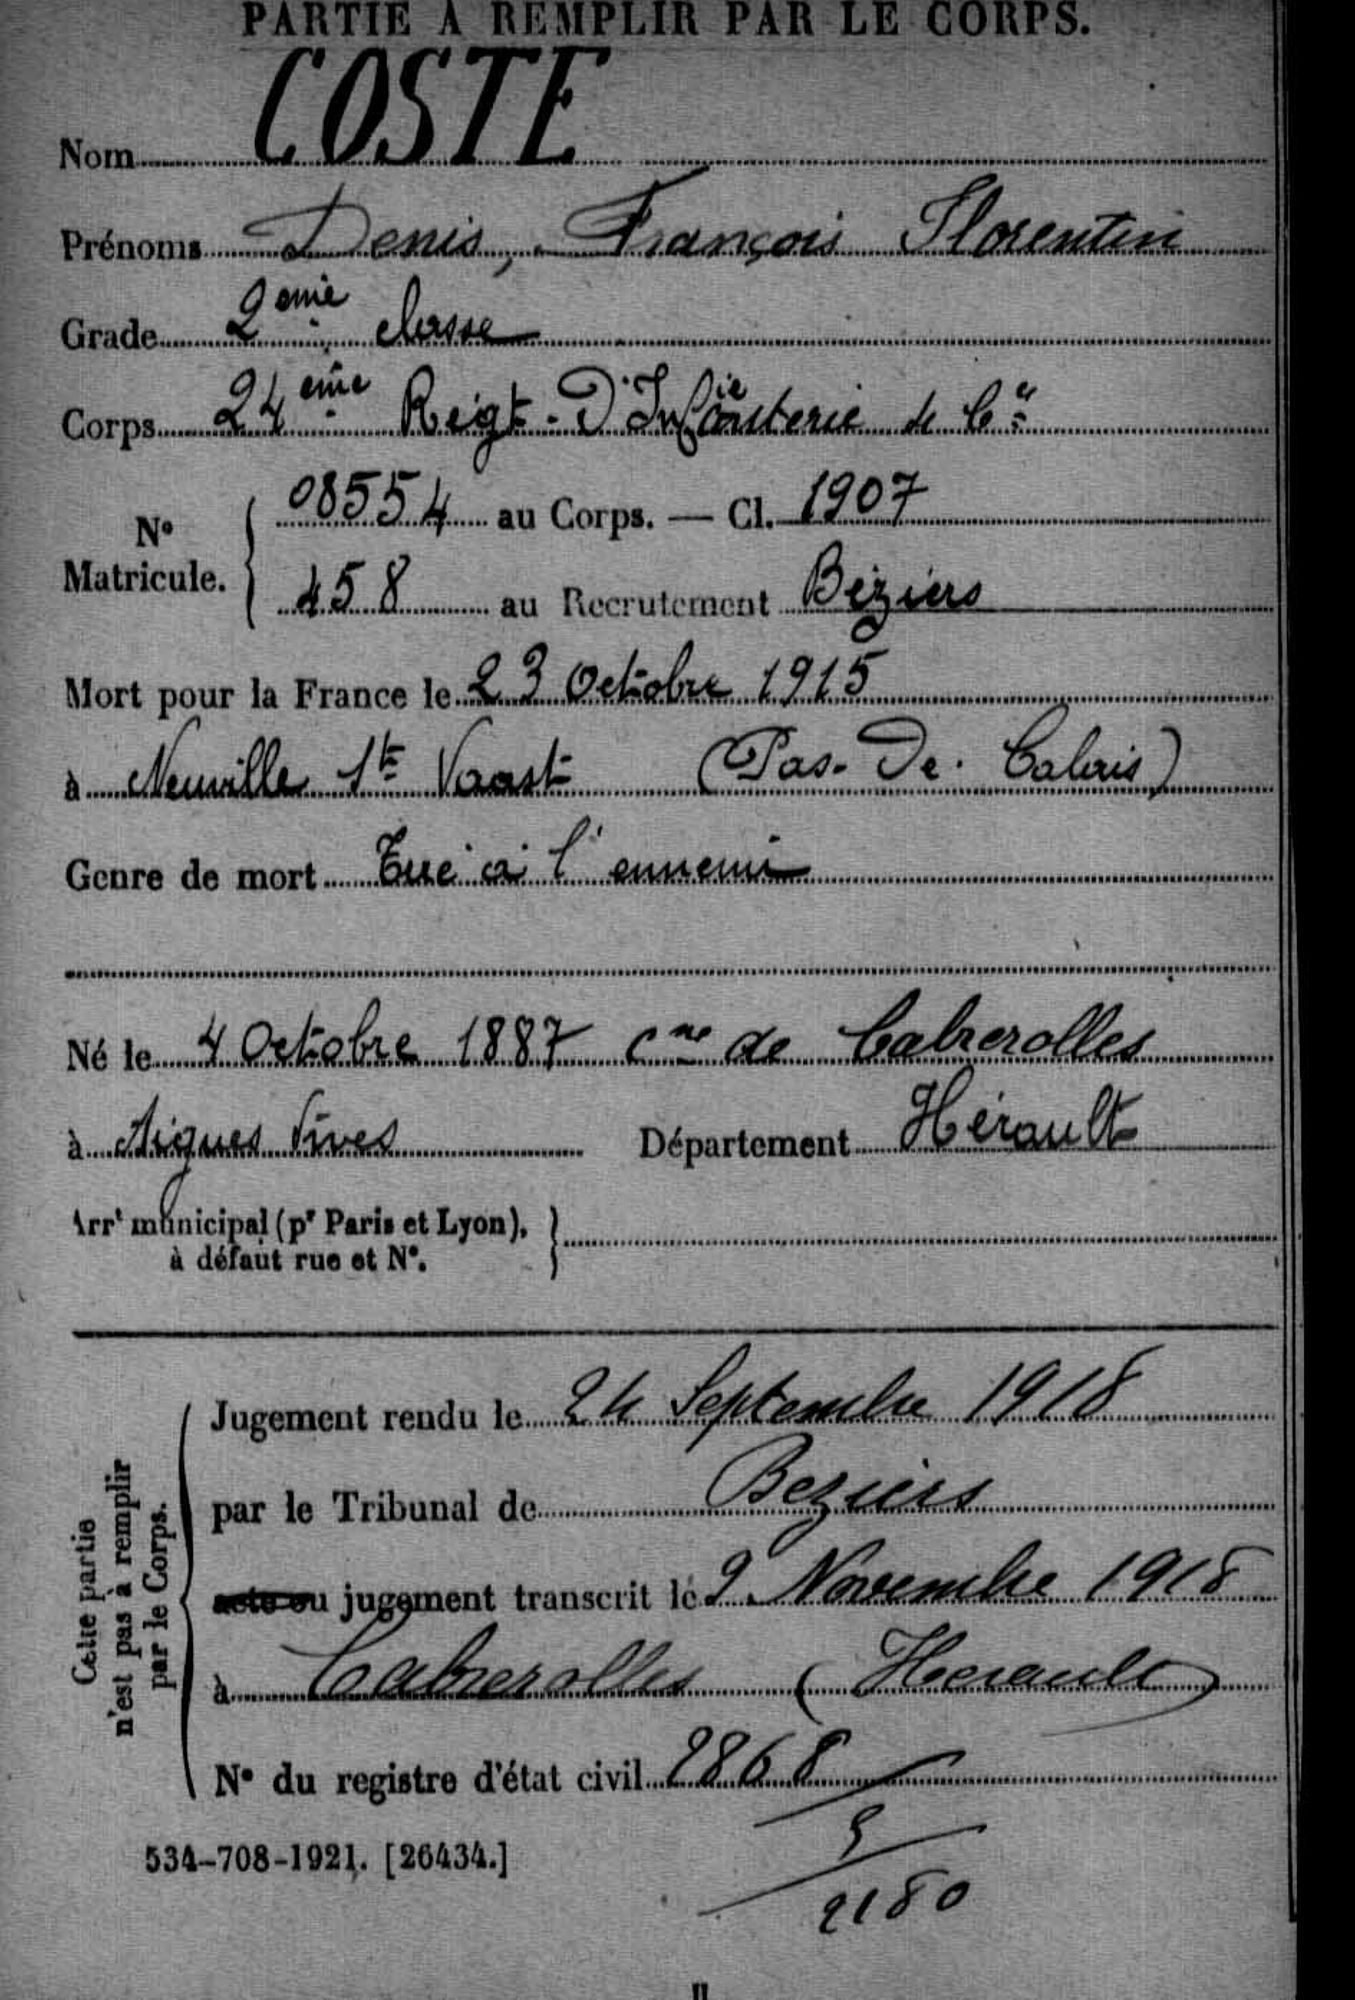 PARTIE À REMPLIR PAR LE CORPS.
Nom COSTE
Prénoms Denis, François Florentin
Grade 2ème classe
Corps 24ème Régt D'Infanterie de Cie
N° Matricule. 08554 au Corps. — Cl. 1907
458 au Recrutement Béziers
Mort pour la France le 23 Octobre 1915
à Neuville Ste Vaast (Pas-De-Calais)
Genre de mort Tué à l'ennemi
Né le 4 Octobre 1887 Cne de Cabrerolles
à Aigues Vives Département Hérault
Arrt municipal (pr Paris et Lyon),
à défaut rue et N°.
Cette partie
n'est pas à remplir
par le Corps.
Jugement rendu le 24 Septembre 1918
par le Tribunal de Beziers
acte ou jugement transcrit le 2 Novembre 1918
à Cabrerolles (Herault)
N° du registre d'état civil 2868
534-708-1921. [26434.]
2180